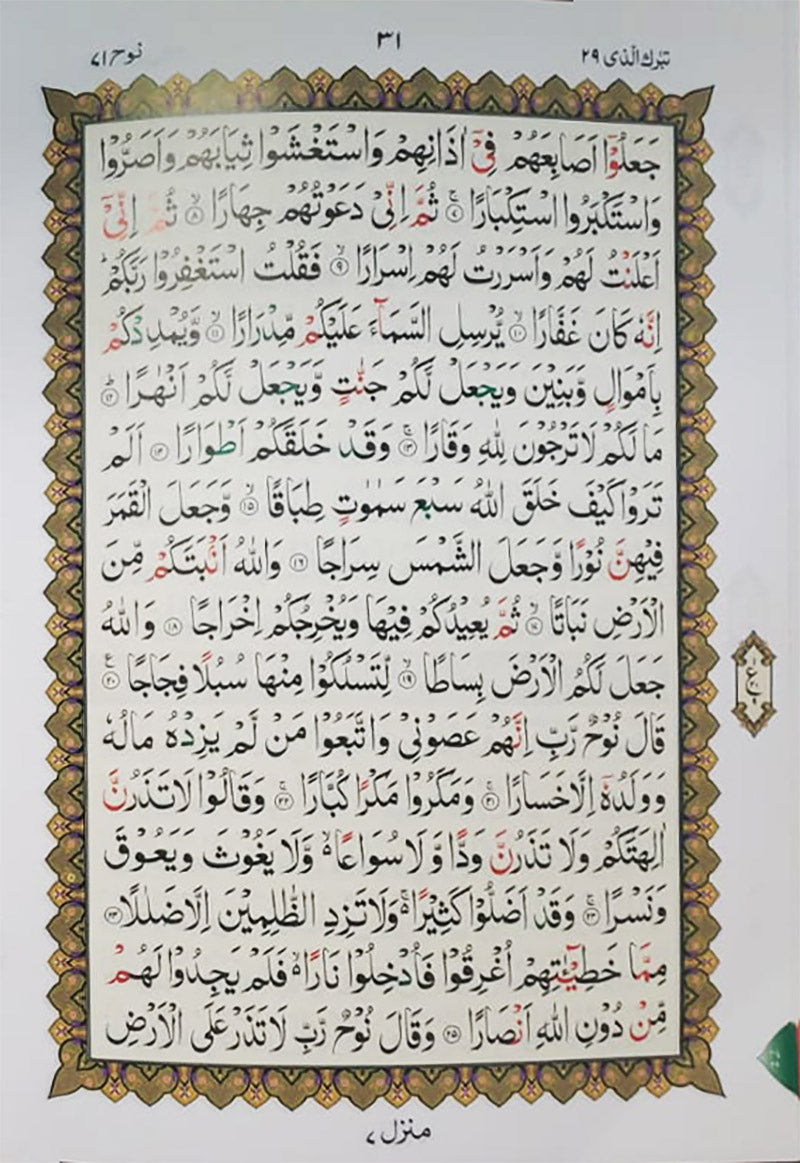 تبٰرك الّذى ٢٩ ٣١ نوح ٧١
جَعَلُوۡۤا اَصَابِعَهُمۡ فِىۡۤ اٰذَانِهِمۡ وَاسۡتَغۡشَوۡا ثِيَابَهُمۡ وَاَصَرُّوۡا
وَاسۡتَكۡبَرُوا اسۡتِكۡبَارًا ۚ‏﴿۷﴾ ثُمَّ اِنِّىۡ دَعَوۡتُهُمۡ جِهَارًا ۙ‏﴿۸﴾ ثُمَّ اِنِّىۡۤ
اَعۡلَنۡتُ لَهُمۡ وَاَسۡرَرۡتُ لَهُمۡ اِسۡرَارًا ۙ‏﴿۹﴾ فَقُلۡتُ اسۡتَغۡفِرُوۡا رَبَّكُمۡؕ
اِنَّهٗ كَانَ غَفَّارًا ۙ‏﴿۱۰﴾ يُّرۡسِلِ السَّمَآءَ عَلَيۡكُمۡ مِّدۡرَارًا ۙ‏﴿۱۱﴾ وَّيُمۡدِدۡكُمۡ
بِاَمۡوَالٍ وَّبَنِيۡنَ وَيَجۡعَلۡ لَّكُمۡ جَنّٰتٍ وَّيَجۡعَلۡ لَّكُمۡ اَنۡهٰرًا ؕ‏﴿۱۲﴾
مَا لَكُمۡ لَا تَرۡجُوۡنَ لِلّٰهِ وَقَارًا ۚ‏﴿۱۳﴾ وَقَدۡ خَلَقَكُمۡ اَطۡوَارًا‏﴿۱۴﴾ اَلَمۡ
تَرَوۡا كَيۡفَ خَلَقَ اللّٰهُ سَبۡعَ سَمٰوٰتٍ طِبَاقًا ۙ‏﴿۱۵﴾ وَّجَعَلَ الۡقَمَرَ
فِيۡهِنَّ نُوۡرًا وَّجَعَلَ الشَّمۡسَ سِرَاجًا‏﴿۱۶﴾ وَاللّٰهُ اَنۡۢبَتَكُمۡ مِّنَ
الۡاَرۡضِ نَبَاتًا ۙ‏﴿۱۷﴾ ثُمَّ يُعِيۡدُكُمۡ فِيۡهَا وَيُخۡرِجُكُمۡ اِخۡرَاجًا‏﴿۱۸﴾ وَاللّٰهُ
جَعَلَ لَكُمُ الۡاَرۡضَ بِسَاطًا ۙ‏﴿۱۹﴾ لِّتَسۡلُكُوۡا مِنۡهَا سُبُلًا فِجَاجًا‏﴿۲۰﴾ ع
قَالَ نُوۡحٌ رَّبِّ اِنَّهُمۡ عَصَوۡنِىۡ وَاتَّبَعُوۡا مَنۡ لَّمۡ يَزِدۡهُ مَالُهٗ
وَوَلَدُهٗۤ اِلَّا خَسَارًا ۚ‏﴿۲۱﴾ وَمَكَرُوۡا مَكۡرًا كُبَّارًا ۚ‏﴿۲۲﴾ وَقَالُوۡا لَا تَذَرُنَّ
اٰلِهَتَكُمۡ وَلَا تَذَرُنَّ وَدًّا وَّلَا سُوَاعًا ۙ وَّلَا يَغُوۡثَ وَيَعُوۡقَ
وَنَسۡرًا ۚ‏﴿۲۳﴾ وَقَدۡ اَضَلُّوۡا كَثِيۡرًا ۚ وَلَا تَزِدِ الظّٰلِمِيۡنَ اِلَّا ضَلٰلًا‏﴿۲۴﴾
مِمَّا خَطِيۡٓـٰٔتِهِمۡ اُغۡرِقُوۡا فَاُدۡخِلُوۡا نَارًا ۙ فَلَمۡ يَجِدُوۡا لَهُمۡ
مِّنۡ دُوۡنِ اللّٰهِ اَنۡصَارًا‏﴿۲۵﴾ وَقَالَ نُوۡحٌ رَّبِّ لَا تَذَرۡ عَلَى الۡاَرۡضِ
منزل ٧